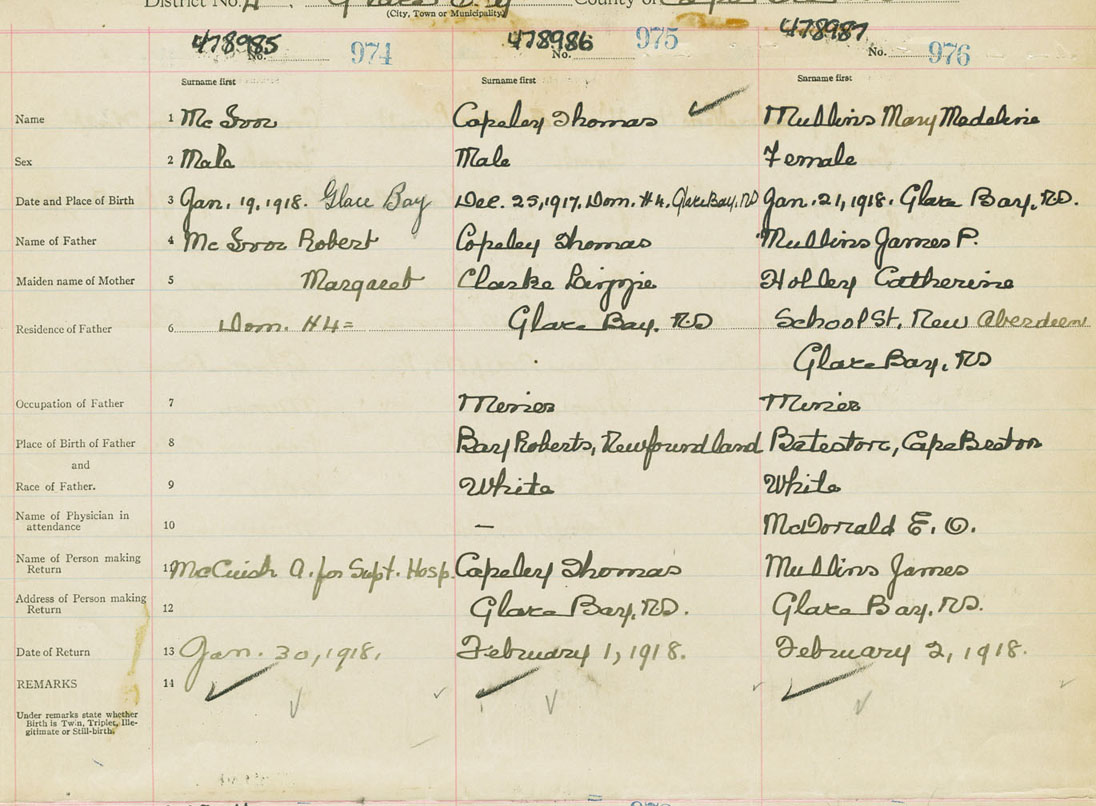 District No. 4. Glace Bay County of Cape
(City, Town or Municipality)
478985 No. 974 478986 No. 975 478987 No. 976
Surname first Surname first Surname first
Name 1 Mc Ivor Capeley Thomas Mullins Mary Madeline
Sex 2 Male Male Female
Date and Place of Birth 3 Jan. 19, 1918. Glace Bay Dec. 25, 1917. Dom. #4, Glace Bay, NS Jan. 21, 1918. Glace Bay, NS.
Name of Father 4 Mc Ivor Robert Copeley Thomas Mullins James P.
Maiden name of Mother 5 Margaret Clarke Lizzie Holley Catherine
Residence of Father 6 Dom. #4 = Glace Bay, NS School St, New Aberdeen
Glace Bay, NS
Occupation of Father 7 Miner Miner
Place of Birth of Father 8 Bay Roberts, Newfoundland Cape Breton
and
Race of Father. 9 White White
Name of Physician in attendance 10 — McDonald E. O.
Name of Person making Return 11 McCuish A. for Supt. Hosp. Capeley Thomas Mullins James
Address of Person making Return 12 Glace Bay, NS. Glace Bay, NS.
Date of Return 13 Jan. 30, 1918. February 1, 1918. February 2, 1918.
REMARKS 14
Under remarks state whether
Birth is Twin, Triplet, Ille-
gitimate or Still-birth.